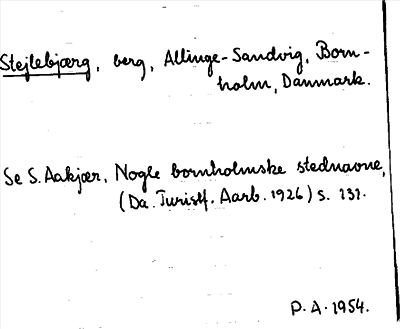 Stejlebjærg, berg, Allinge-Sandvig, Born-
holm, Danmark.
Se S. Aakjær, Nogle bornholmske stednavne,
(Da. Turistf. Aarb. 1926) s. 131.
P. A. 1954.